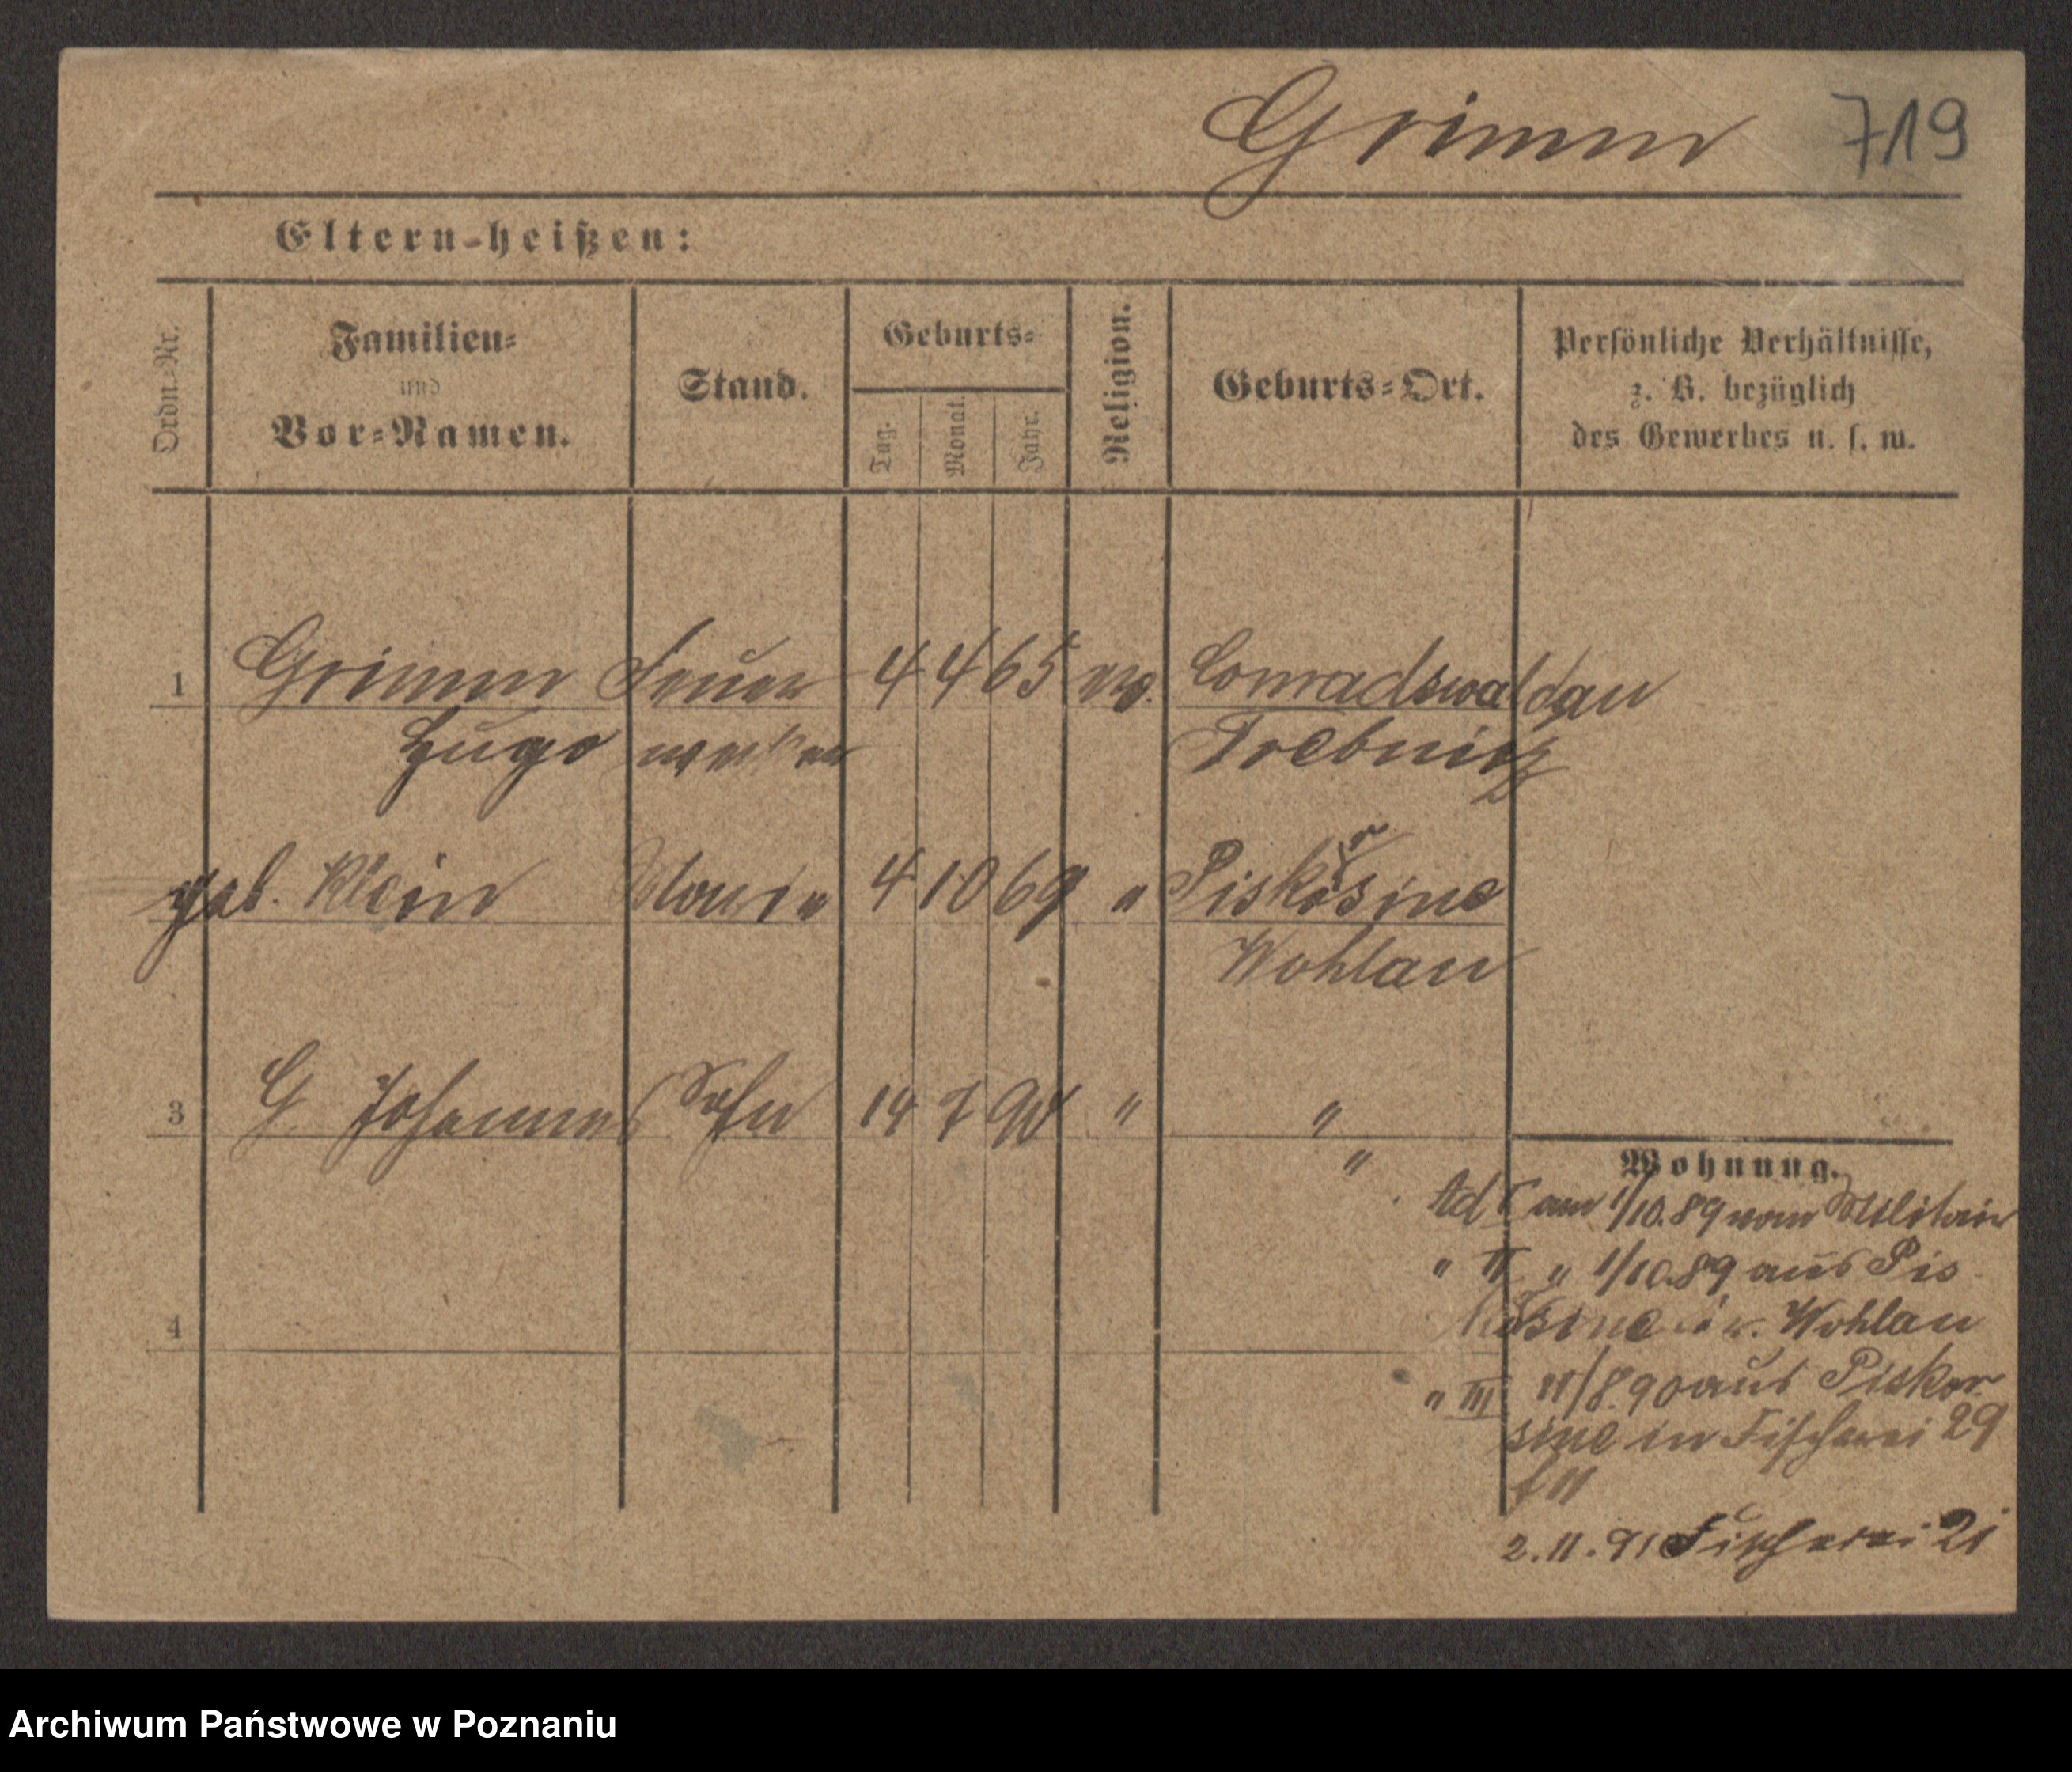 Grimm 719
Eltern heißen:
Ordn.-Nr.
Familien-
und
Vor-Namen.
Stand.
Geburts-
Tag.
Monat.
Jahr.
Religion.
Geburts-Ort.
Persönliche Verhältnisse,
z. B. bezüglich
des Gewerbes u. s. w.
1 Grimm Feuer 4 4 65 ev. Conradswaldau
Hugo Trebnitz
geb. Klein Marie 4 10 69 " Piskorsine
Wohlau
3 G Johannes Sohn 14 7 90 " "
"
Wohnung.
Ad I am 1/10.89 vom Militair
" II " 1/10.89 aus Pis
korsine Wohlau
" III 11/8.90 aus Piskor
sine in Fischerei 29
2.11.91 Fischerei 21
4
Archiwum Państwowe w Poznaniu